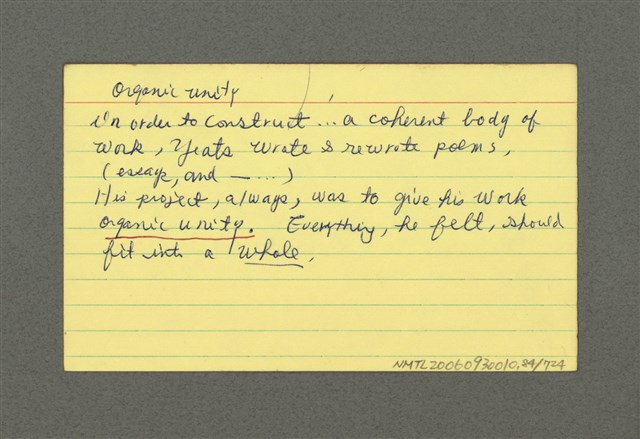 Organic unity
in order to construct... a coherent body of
work, Yeats wrote & rewrote poems,
(essays, and —....)
His project, always, was to give his work
organic unity. Everything, he felt, should
fit into a whole.
NMTL20060930010.84/724